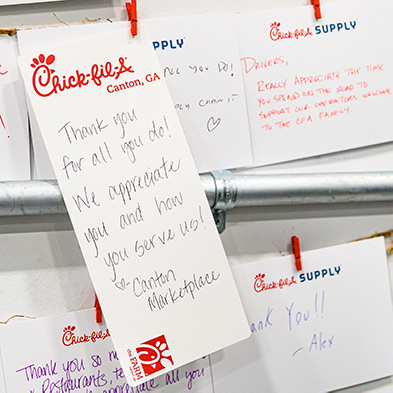 Chick-fil-A
Canton, GA
Thank you
for all you do!
We appreciate
you and how
you serve us!
♡ Canton
Marketplace
the FARM
SUPPLY
ALL YOU DO!
♡
Chick-fil-A SUPPLY
DRIVERS,
REALLY APPRECIATE THE TIME
YOU SPEND ON THE ROAD TO
SUPPORT OUR OPERATORS. WELCOME
TO THE CFA FAMILY.
Chick-fil-A SUPPLY
Thank You!!
- Alex
Chick-fil-A
Thank you so
Restaurants,
appreciate all you